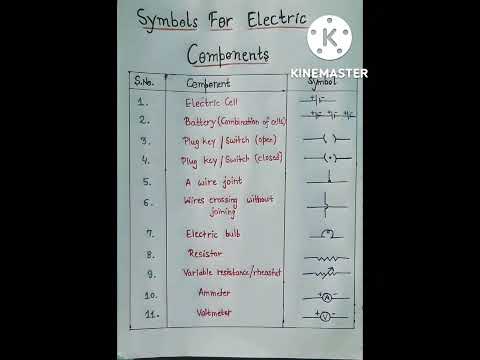 Symbols For Electric
Components
KINEMASTER
S.No. Component Symbol
1. Electric Cell
2. Battery (Combination of cells)
3. Plug key / Switch (open)
4. Plug key / Switch (closed)
5. A wire joint
6. Wires crossing without
joining
7. Electric bulb
8. Resistor
9. Variable resistance/rheostat
10. Ammeter A
11. Voltmeter V